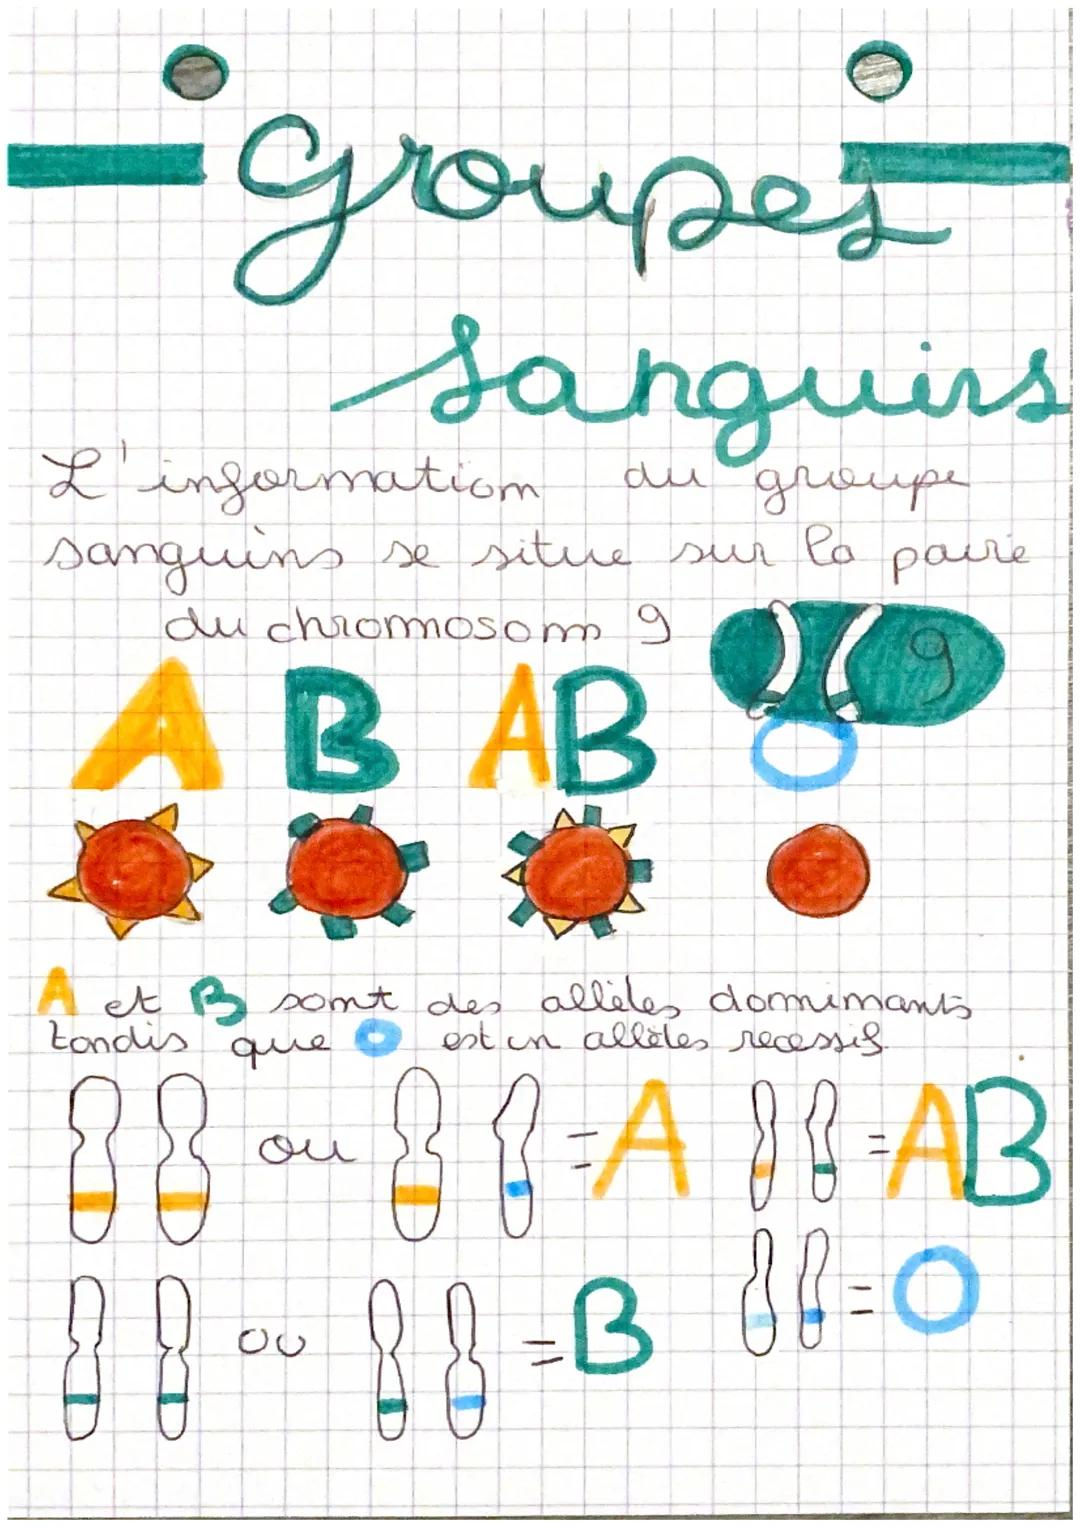 Groupes
sanguins
L'information du groupe
sanguins se situe sur la paire
du chromosom 9
9
A B AB O
A et B sont des allèles dominants
tandis que O est un allèles recessif.
ou = A = AB
= O
ou = B